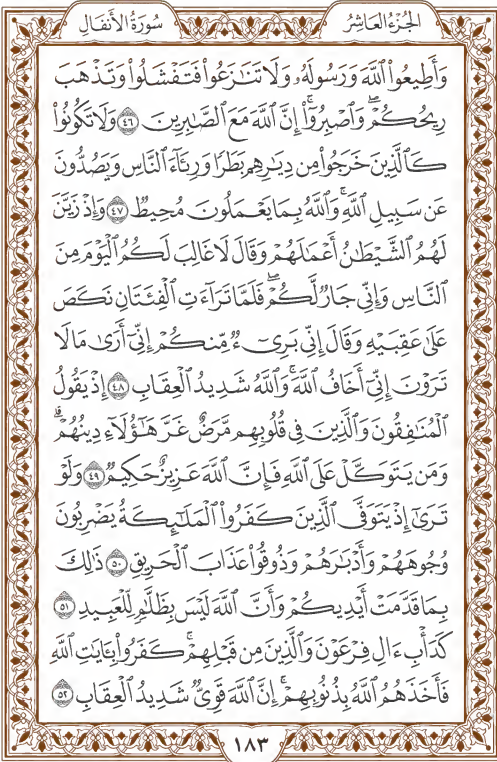 الجزء العاشر
سورة الأنفال
وَأَطِيعُوا۟ ٱللَّهَ وَرَسُولَهُۥ وَلَا تَنَٰزَعُوا۟ فَتَفْشَلُوا۟ وَتَذْهَبَ
رِيحُكُمْ ۖ وَٱصْبِرُوٓا۟ ۚ إِنَّ ٱللَّهَ مَعَ ٱلصَّٰبِرِينَ ٤٦ وَلَا تَكُونُوا۟
كَٱلَّذِينَ خَرَجُوا۟ مِن دِيَٰرِهِم بَطَرًا وَرِئَآءَ ٱلنَّاسِ وَيَصُدُّونَ
عَن سَبِيلِ ٱللَّهِ ۚ وَٱللَّهُ بِمَا يَعْمَلُونَ مُحِيطٌ ٤٧ وَإِذْ زَيَّنَ
لَهُمُ ٱلشَّيْطَٰنُ أَعْمَٰلَهُمْ وَقَالَ لَا غَالِبَ لَكُمُ ٱلْيَوْمَ مِنَ
ٱلنَّاسِ وَإِنِّى جَارٌ لَّكُمْ ۖ فَلَمَّا تَرَآءَتِ ٱلْفِئَتَانِ نَكَصَ
عَلَىٰ عَقِبَيْهِ وَقَالَ إِنِّى بَرِىٓءٌ مِّنكُمْ إِنِّىٓ أَرَىٰ مَا لَا
تَرَوْنَ إِنِّىٓ أَخَافُ ٱللَّهَ ۚ وَٱللَّهُ شَدِيدُ ٱلْعِقَابِ ٤٨ إِذْ يَقُولُ
ٱلْمُنَٰفِقُونَ وَٱلَّذِينَ فِى قُلُوبِهِم مَّرَضٌ غَرَّ هَٰٓؤُلَآءِ دِينُهُمْ ۗ
وَمَن يَتَوَكَّلْ عَلَى ٱللَّهِ فَإِنَّ ٱللَّهَ عَزِيزٌ حَكِيمٌ ٤٩ وَلَوْ
تَرَىٰٓ إِذْ يَتَوَفَّى ٱلَّذِينَ كَفَرُوا۟ ۙ ٱلْمَلَٰٓئِكَةُ يَضْرِبُونَ
وُجُوهَهُمْ وَأَدْبَٰرَهُمْ وَذُوقُوا۟ عَذَابَ ٱلْحَرِيقِ ٥٠ ذَٰلِكَ
بِمَا قَدَّمَتْ أَيْدِيكُمْ وَأَنَّ ٱللَّهَ لَيْسَ بِظَلَّٰمٍ لِّلْعَبِيدِ ٥١
كَدَأْبِ ءَالِ فِرْعَوْنَ ۙ وَٱلَّذِينَ مِن قَبْلِهِمْ ۚ كَفَرُوا۟ بِـَٔايَٰتِ ٱللَّهِ
فَأَخَذَهُمُ ٱللَّهُ بِذُنُوبِهِمْ ۗ إِنَّ ٱللَّهَ قَوِىٌّ شَدِيدُ ٱلْعِقَابِ ٥٢
١٨٣